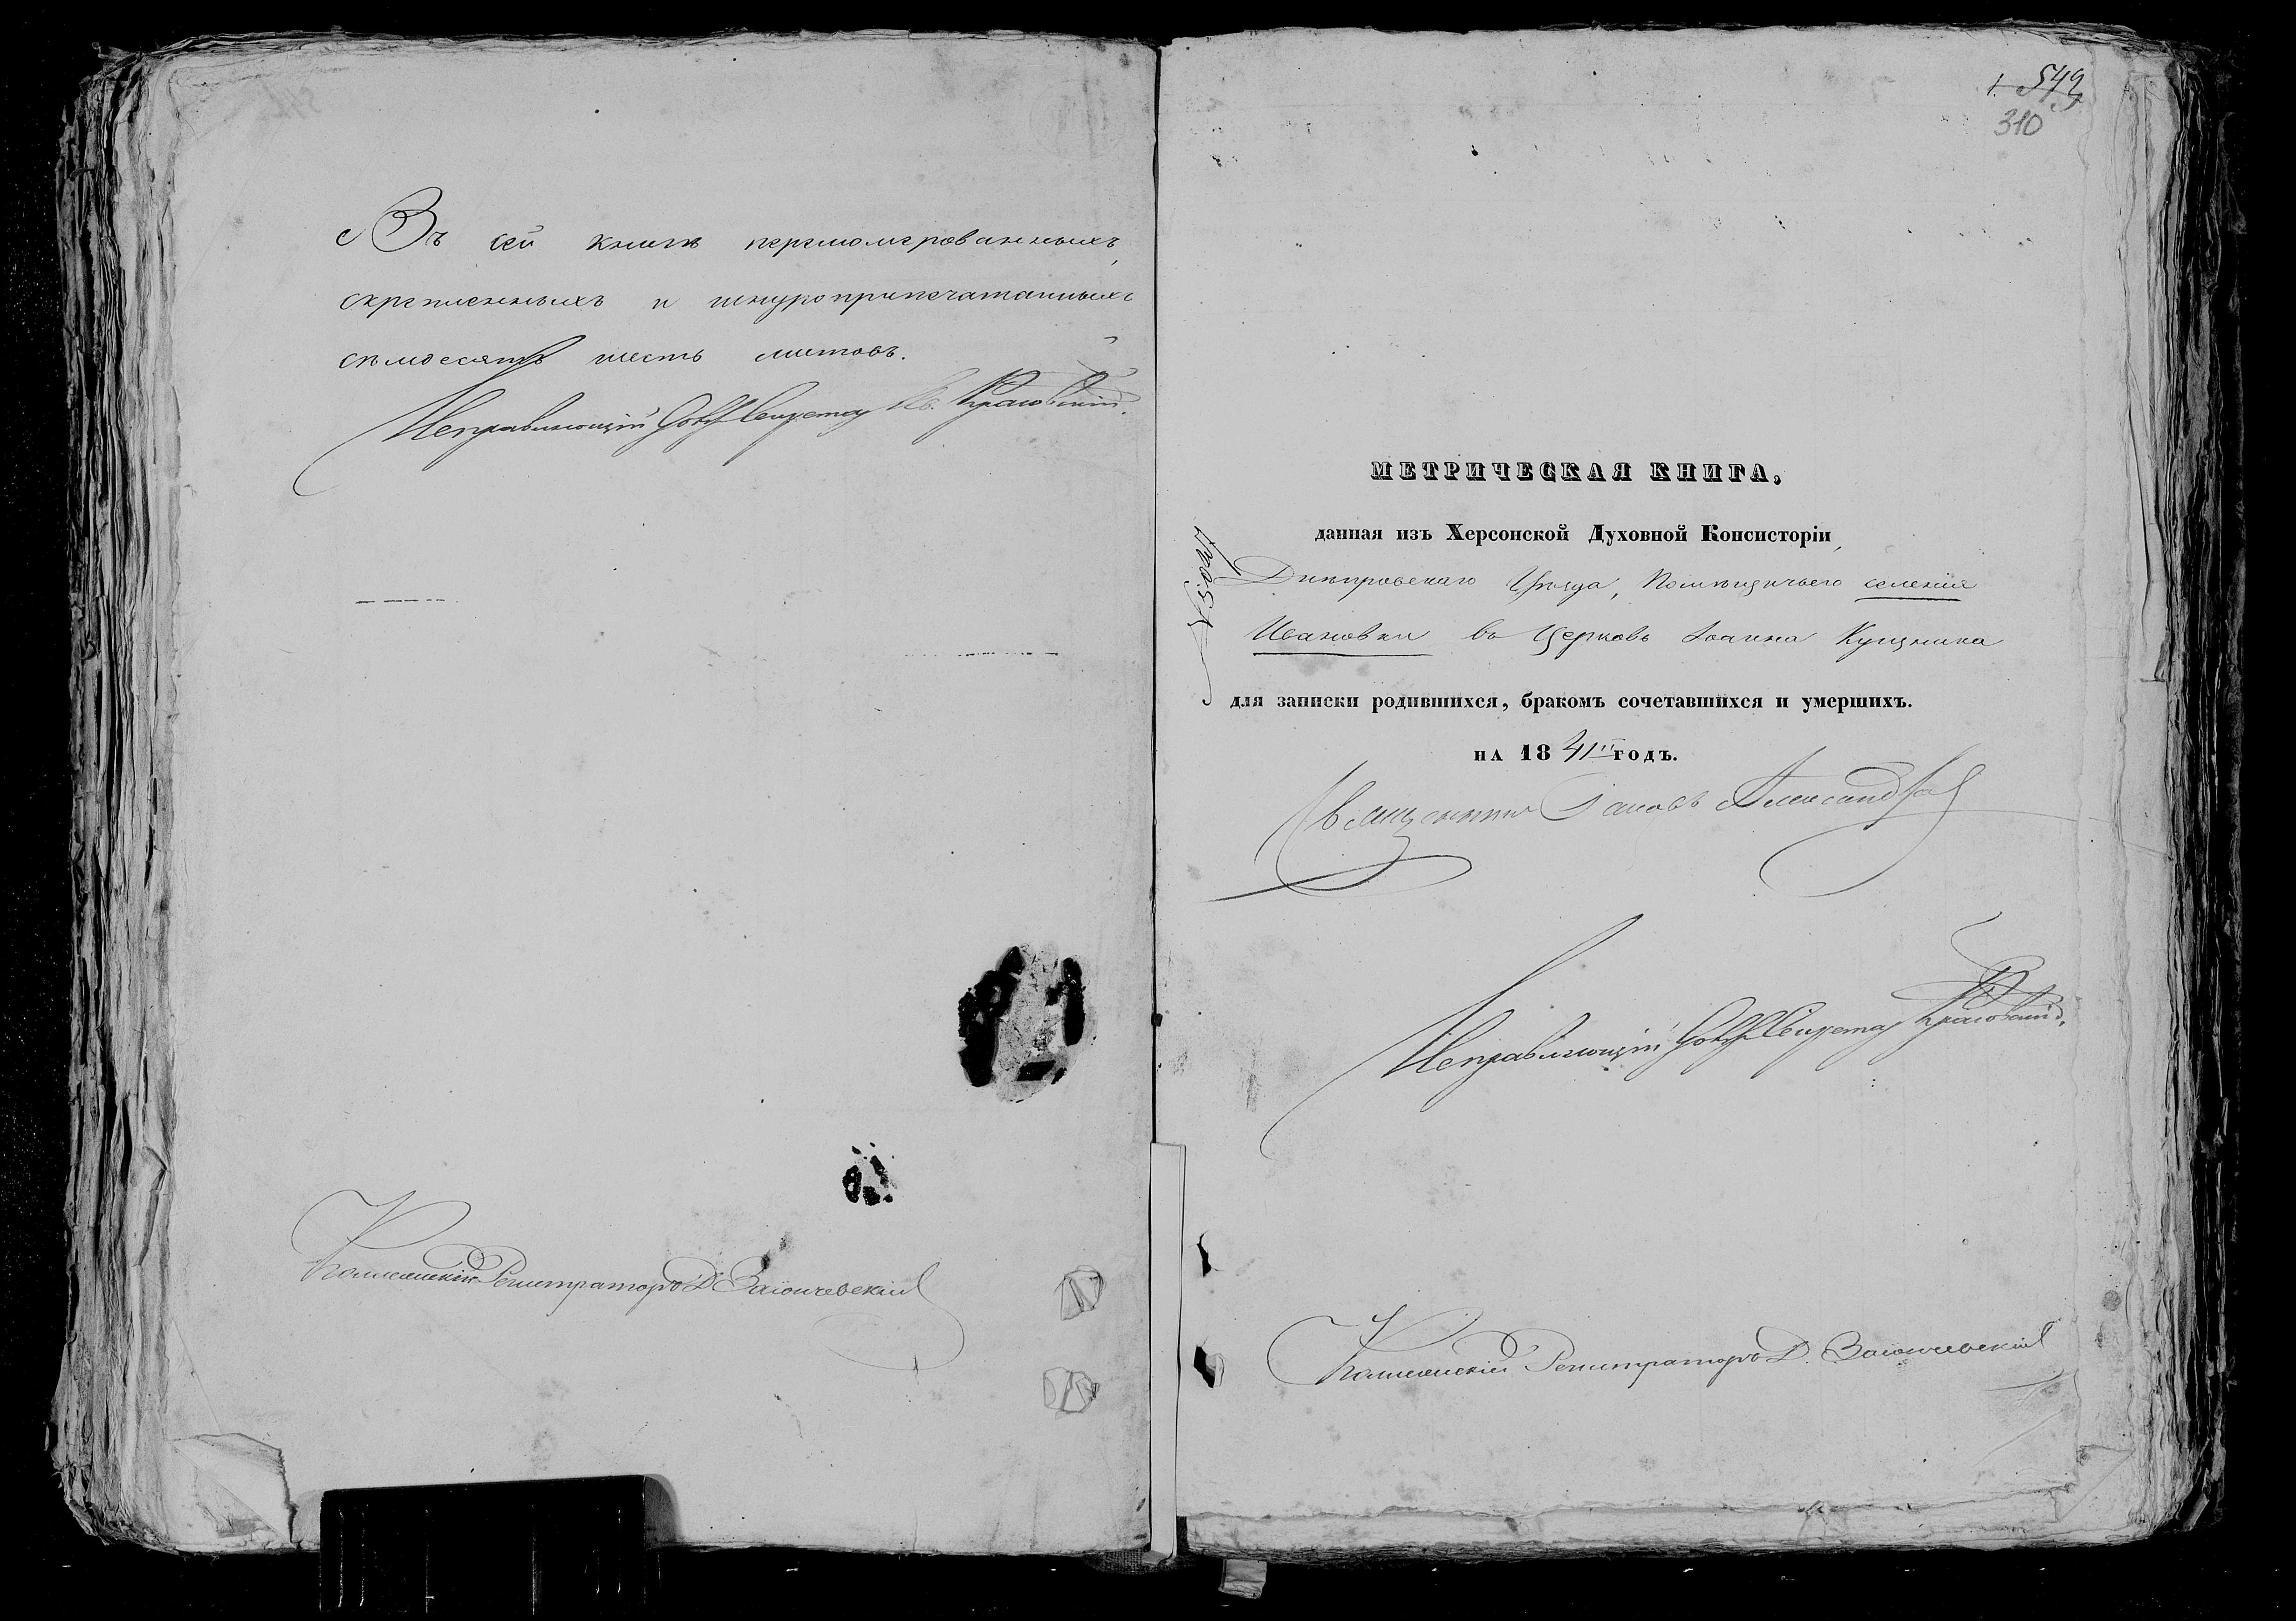 Въ сей книгѣ перенолмерованныхъ,
скрепленныхъ и шнуроприпечатанныхъ
семдесятъ шесть листовъ.
Исправляющій Секретаря
Коллежскій Регистраторъ Д Заіончевскій
1. 549
310
МЕТРИЧЕСКАЯ КНИГА,
данная изъ Херсонской Духовной Консисторіи,
Днѣпровскаго Уѣзда, Помѣщичьего селенія
Ивановки въ Церковь Іоанна Кущника
для записки родившихся, бракомъ сочетавшихся и умершихъ.
НА 1841й ГОДЪ.
Священникъ Іаковъ Александровъ
Исправляющій Секретаря
Коллежскій Регистраторъ Д. Заіончевскій